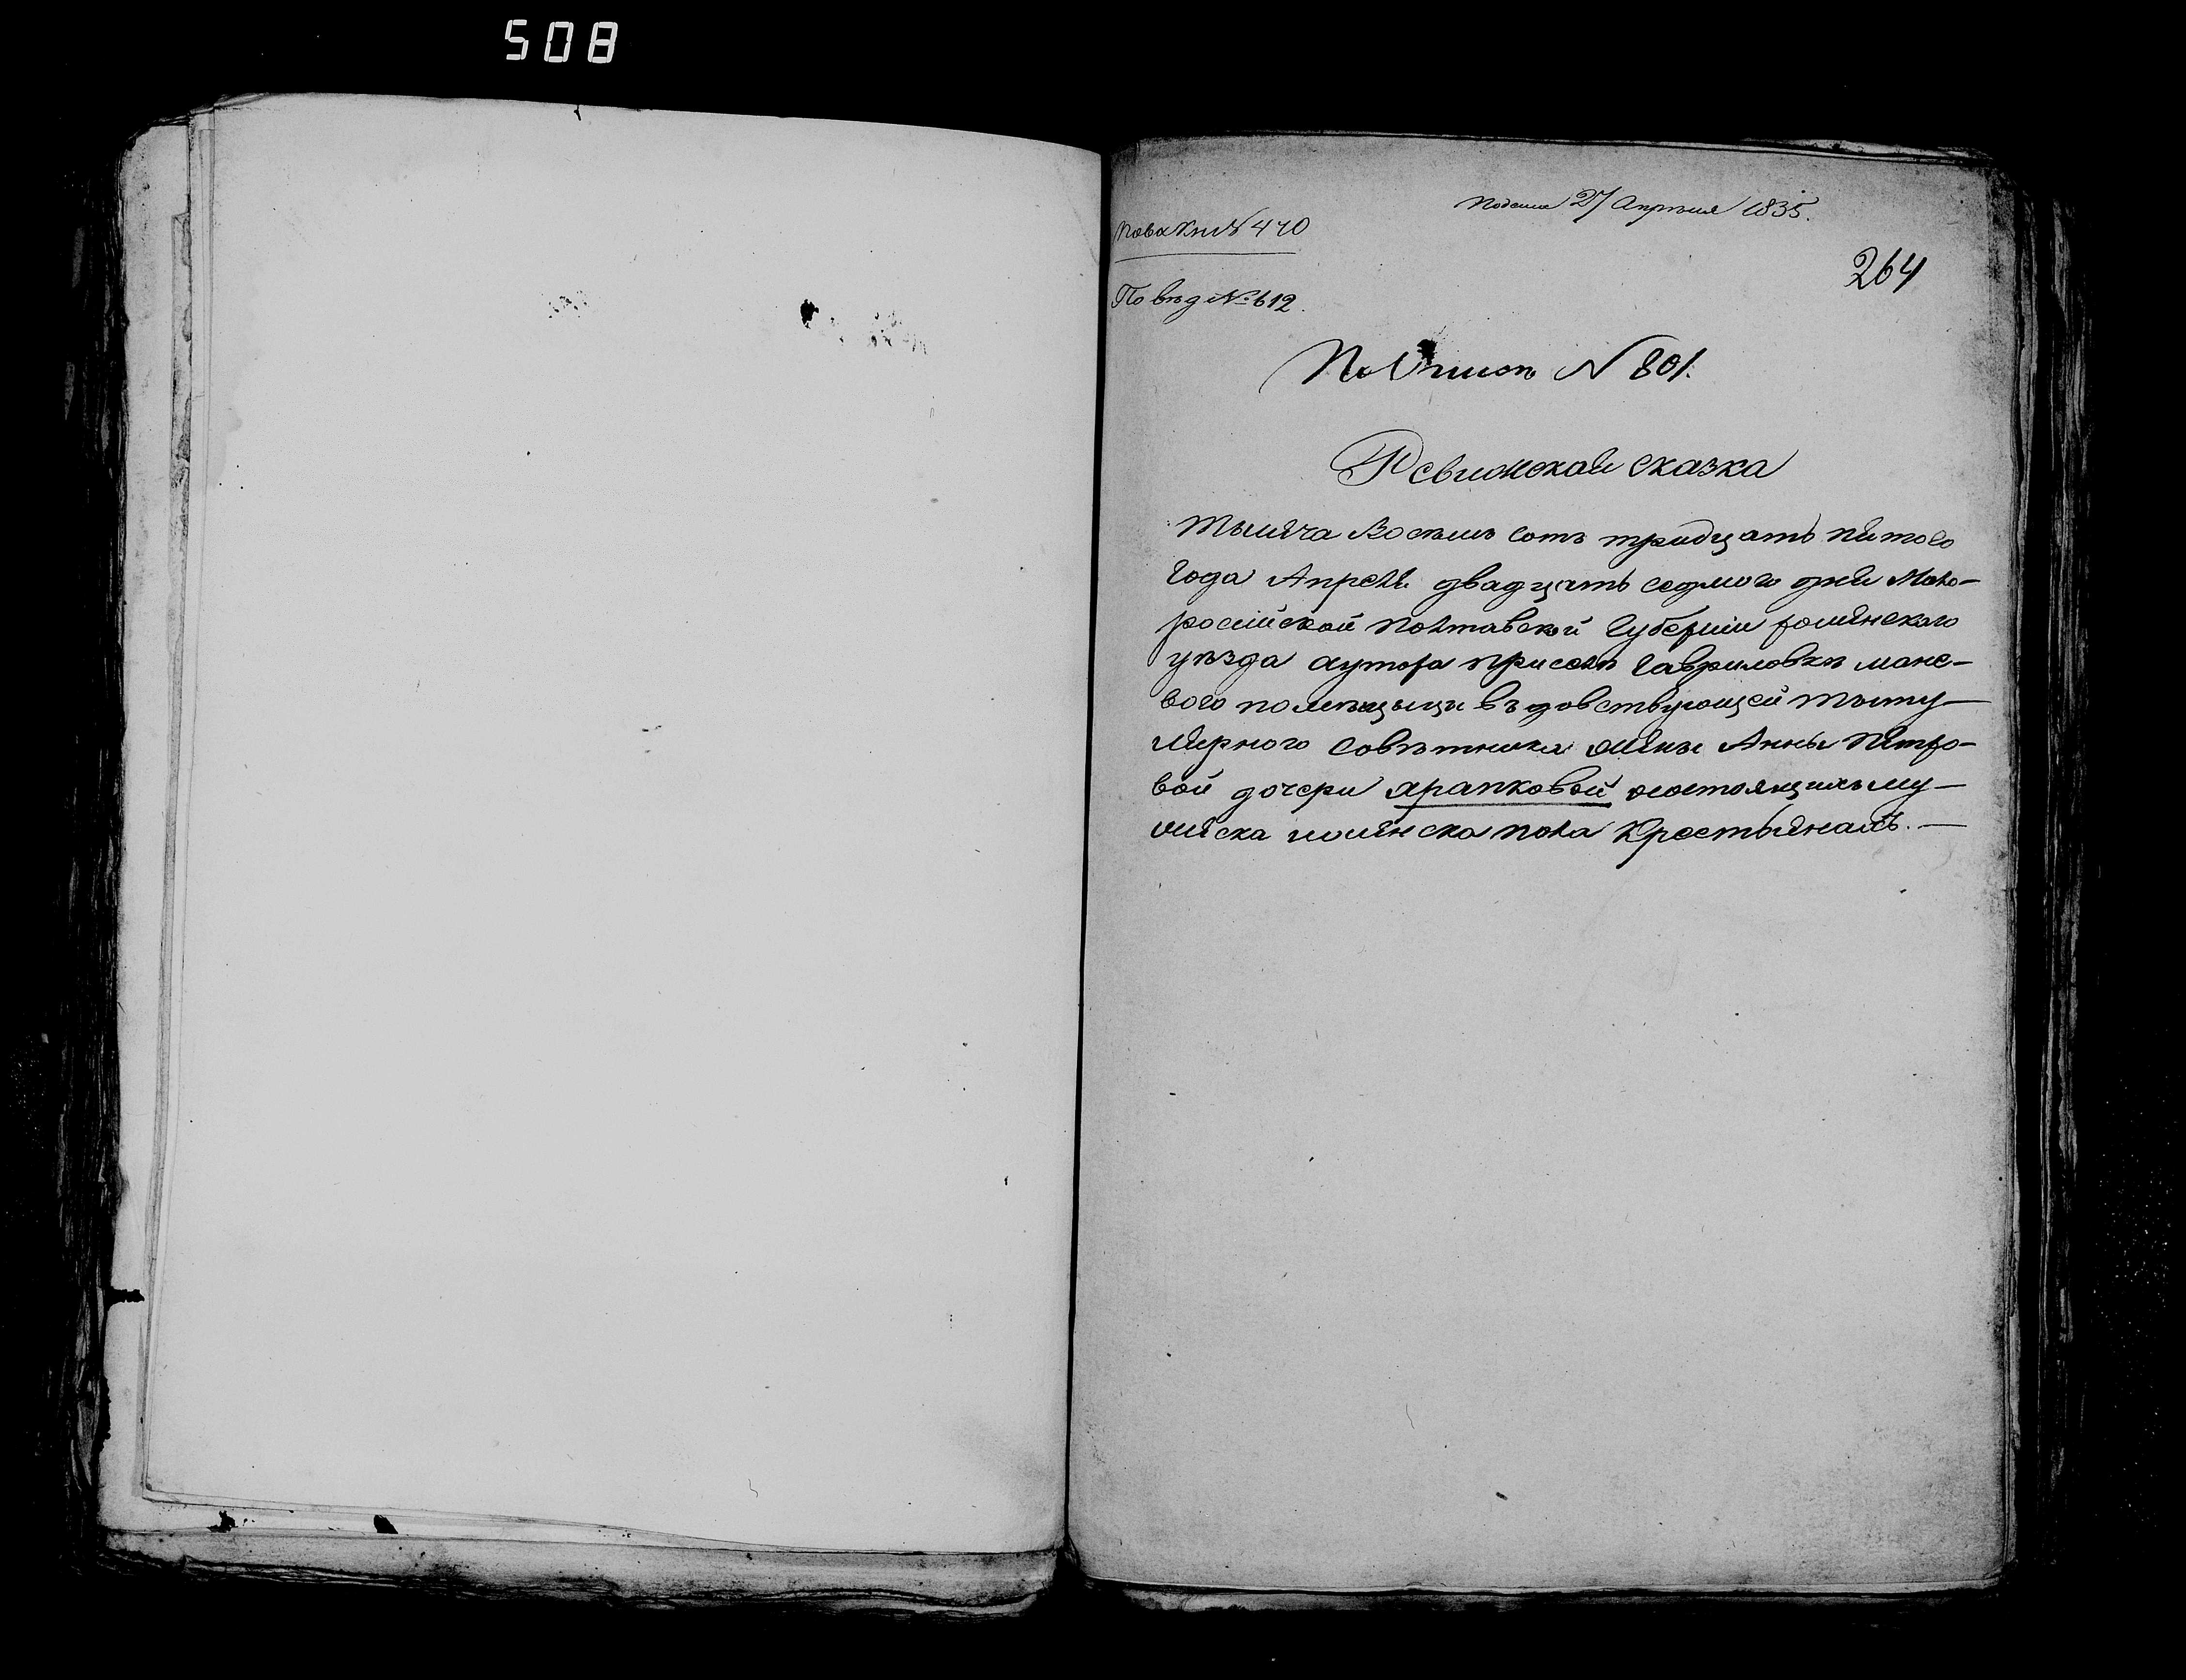 508
Подана 27 Апрѣля 1835.
По вх Кн № 470
264
По вѣд № 612.
По Описи N 801.
Ревизская сказка
Тысяча восемь сотъ тридцать пятого
года Апреля двадцать седмого дня Мало-
россійской Полтавской Губерніи роменского
уѣзда хутора при селѣ Гавриловкѣ
вого помѣщицы въдовствующей титу-
лярного Совѣтника жены Анны Петро-
вой дочери Арапковой осостоящихъ му-
жеска иженска пола Крестьянахъ.—